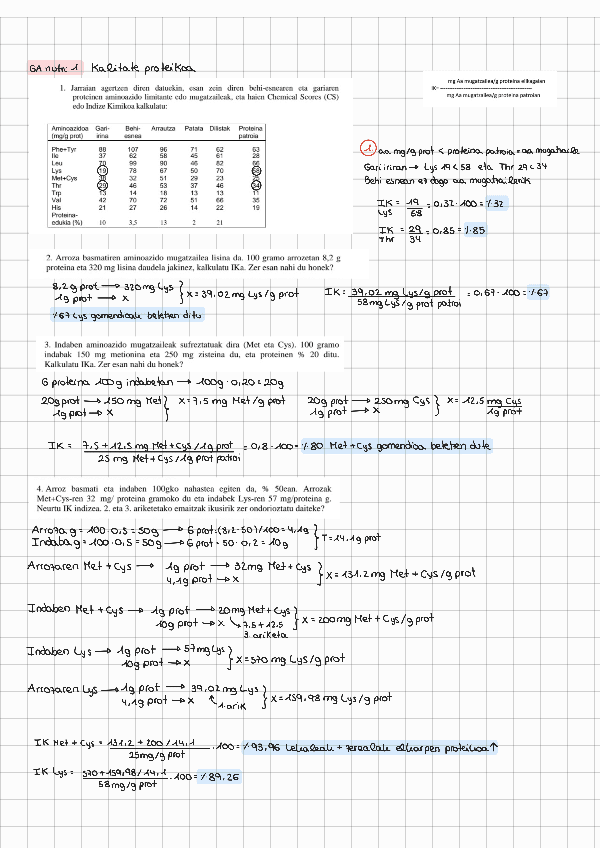 GA nutri 1 Kalitate proteikoa
mg Aa mugatzailea/g proteina elikagaian
IK= ------------------------------
mg Aa mugatzailea/g proteina patroian
1. Jarraian agertzen diren datuekin, esan zein diren behi-esnearen eta gariaren
proteinen aminoazido limitante edo mugatzaileak, eta haien Chemical Scores (CS)
edo Indize Kimikoa kalkulatu:
Aminoazidoa (mg/g prot) Gari-irina Behi-esnea Arrautza Patata Dilistak Proteina patroia
Phe+Tyr 88 107 96 71 62 63
Ile 37 62 58 45 61 28
Leu 70 99 90 46 82 66
Lys 19 78 67 50 70 58
Met+Cys 38 32 51 29 23 25
Thr 29 46 53 37 46 34
Trp 13 14 18 13 13 11
Val 42 70 72 51 66 35
His 21 27 26 14 22 19
Proteina-edukia (%) 10 3,5 13 2 21
1 aa mg/g prot < proteina patroia = aa mugatzaile
Gari irinan → Lys 19 < 58 eta Thr 29 < 34
Behi esnean ez dago aa mugatzailerik
IK Lys = 19/58 = 0,32 · 100 = %32
IK Thr = 29/34 = 0,85 = %85
2. Arroza basmatiren aminoazido mugatzailea lisina da. 100 gramo arrozetan 8,2 g
proteina eta 320 mg lisina daudela jakinez, kalkulatu IKa. Zer esan nahi du honek?
8,2g prot → 320 mg Lys
1g prot → X } X = 39,02 mg Lys/g prot
IK = 39,02 mg Lys/g prot / 58 mg Lys/g prot patroi = 0,67 · 100 = %67
%67 Lys gomendioak betetzen ditu
3. Indaben aminoazido mugatzaileak sufreztatuak dira (Met eta Cys). 100 gramo
indabak 150 mg metionina eta 250 mg zisteina du, eta proteinen % 20 ditu.
Kalkulatu IKa. Zer esan nahi du honek?
G proteina 100g indabetan → 100g · 0,20 = 20g
20g prot → 150 mg Met
1g prot → X } X = 7,5 mg Met/g prot
20g prot → 250 mg Cys
1g prot → X } X = 12,5 mg Cys/1g prot
IK = 7,5 + 12,5 mg Met+Cys/1g prot / 25 mg Met+Cys/1g prot patroi = 0,8 · 100 = %80 Met+Cys gomendioa betetzen dute
4. Arroz basmati eta indaben 100gko nahastea egiten da, % 50ean. Arrozak
Met+Cys-ren 32 mg/ proteina gramoko du eta indabek Lys-ren 57 mg/proteina g.
Neurtu IK indizea. 2. eta 3. ariketetako emaitzak ikusirik zer ondorioztatu daiteke?
Arroza g = 100 · 0,5 = 50g → G prot: (8,2·50)/100 = 4,1g
Indaba g = 100 · 0,5 = 50g → G prot = 50 · 0,2 = 10g } T = 14,1g prot
Arrozaren Met + Cys → 1g prot → 32mg Met + Cys
4,1g prot → X } X = 131,2 mg Met + Cys/g prot
Indaben Met + Cys → 1g prot → 20mg Met + Cys
10g prot → X ↳ 7,5 + 12,5 } X = 200mg Met + Cys/g prot
3. ariketa
Indaben Lys → 1g prot → 57mg Lys
10g prot → X } X = 570 mg Lys/g prot
Arrozaren Lys → 1g prot → 39,02 mg Lys
4,1g prot → X ↑ } X = 159,98 mg Lys/g prot
1. arik
IK Met + Cys = 131,2 + 200 / 14,1 / 25mg/g prot · 100 = %93,96 Lekaleak + zerealak elkarpen proteikoa ↑
IK Lys = 570 + 159,98 / 14,1 / 58 mg/g prot · 100 = %89,26